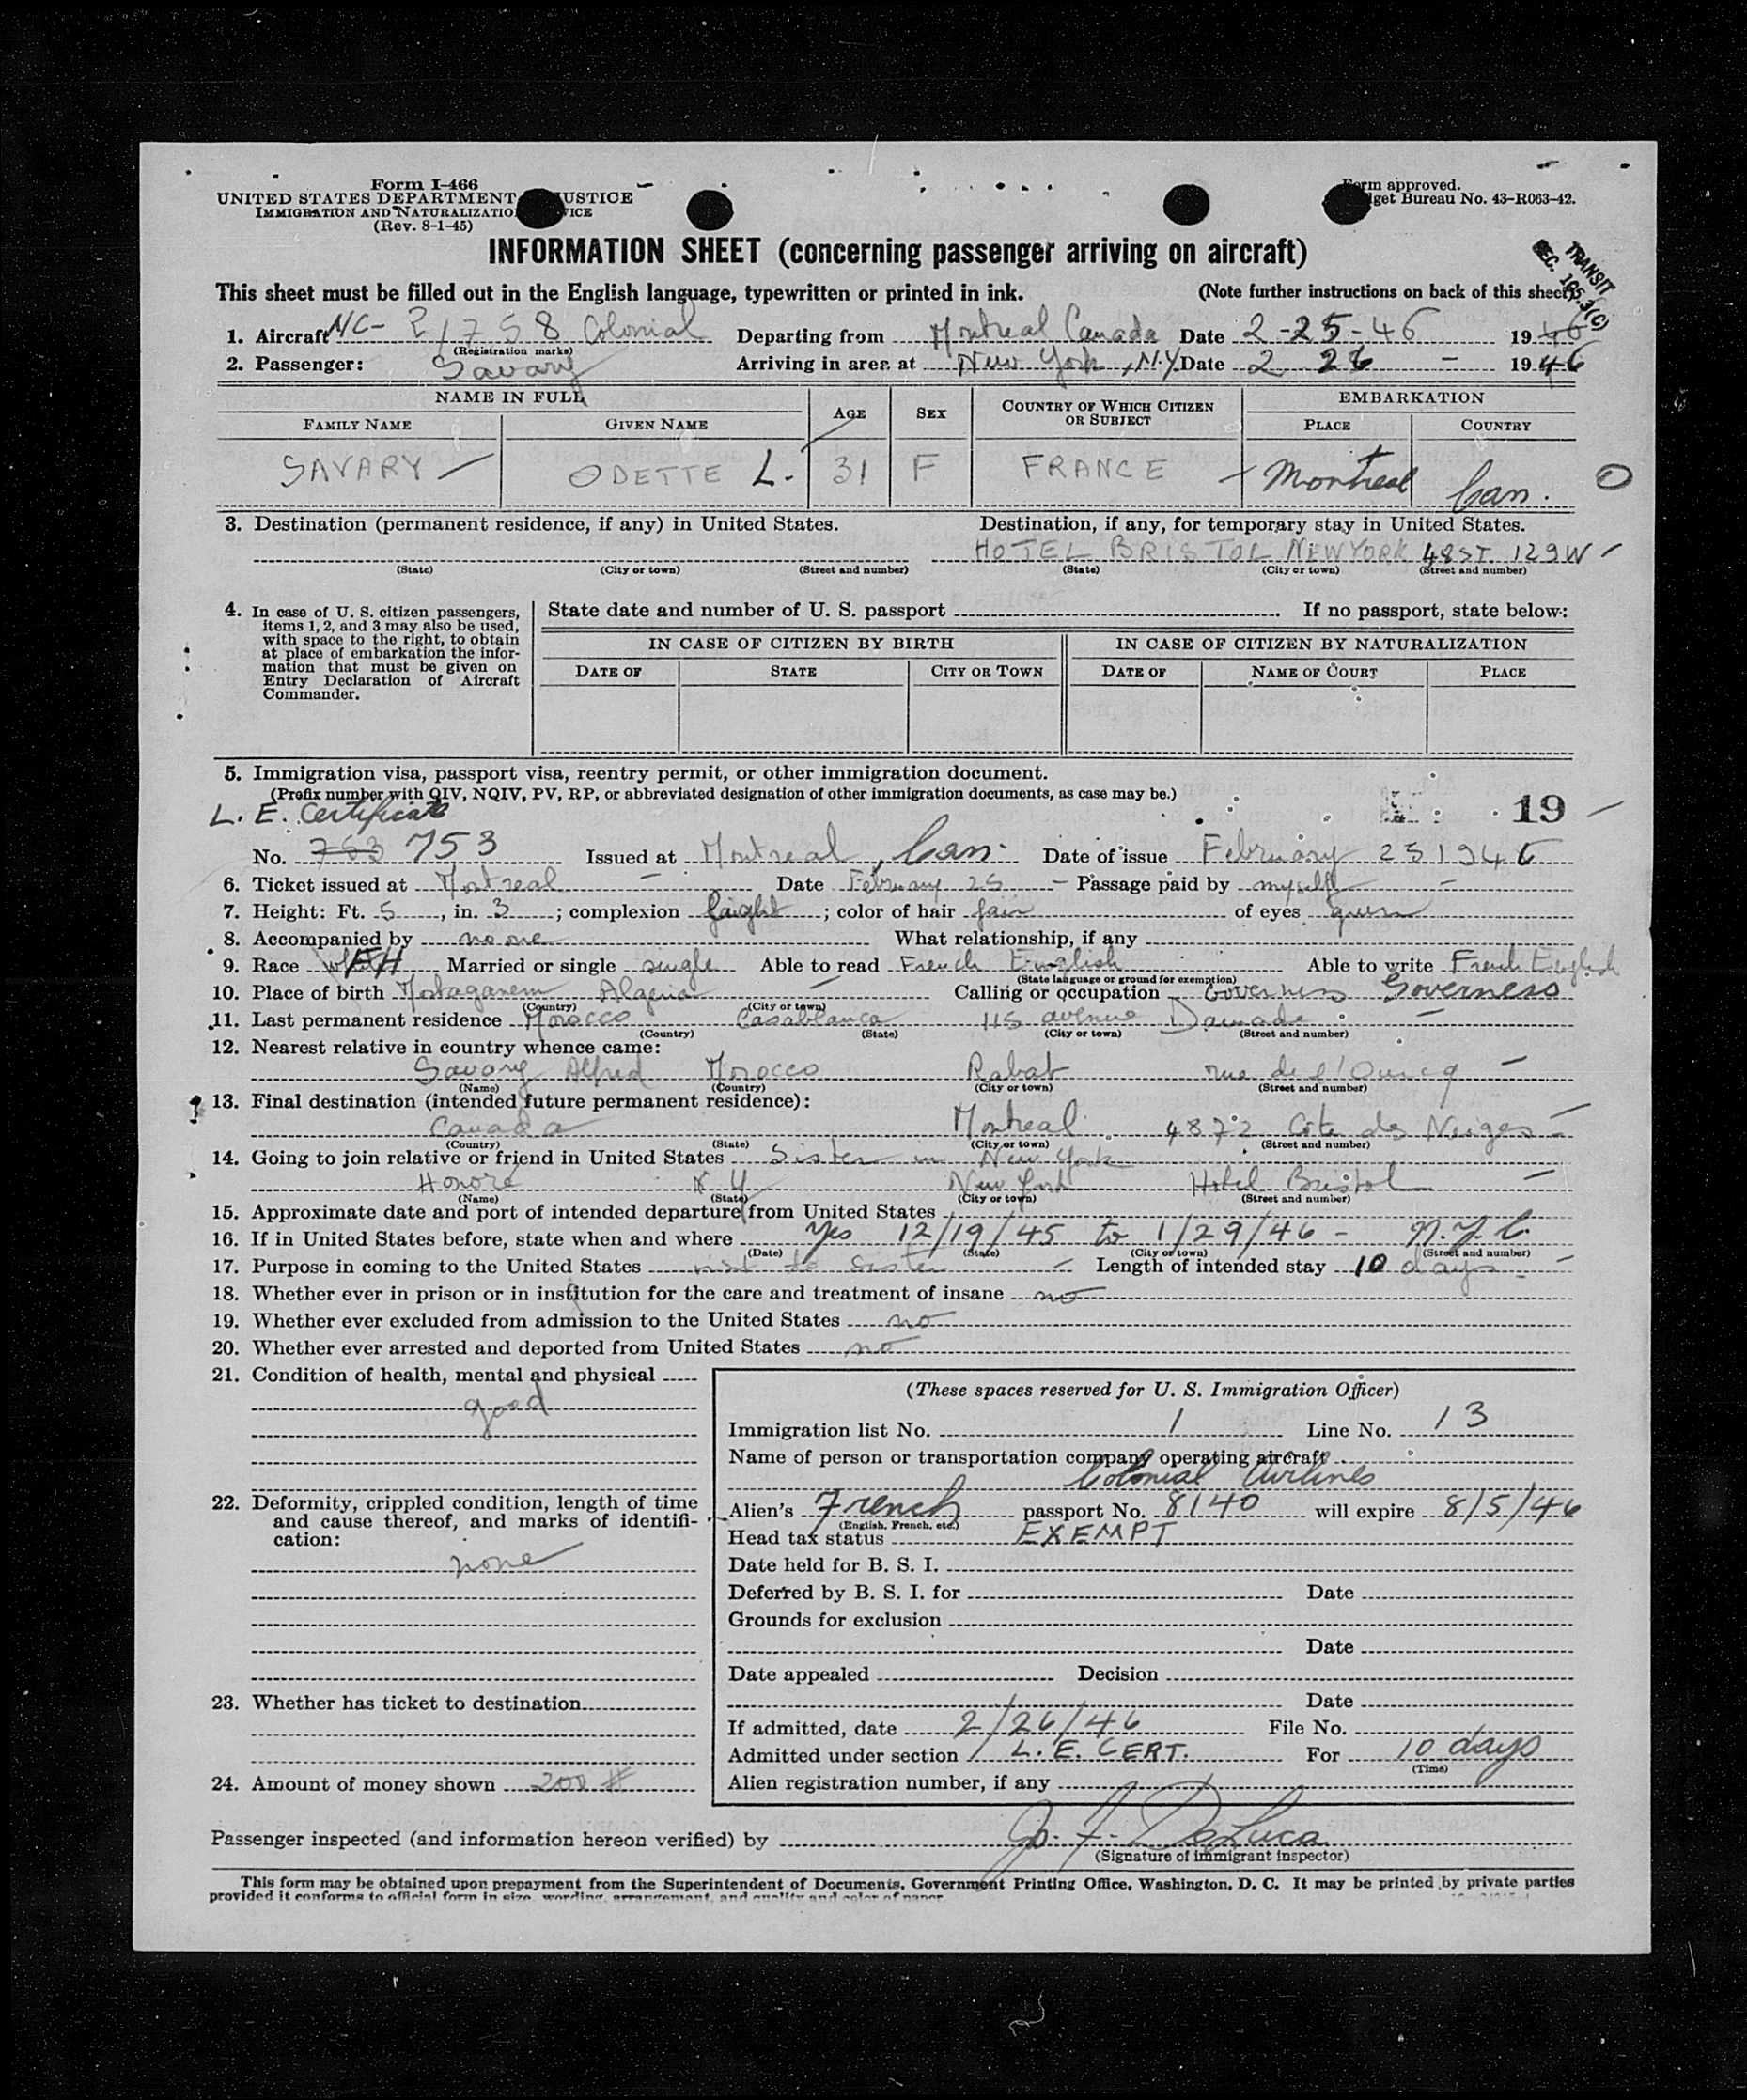 Form I-466
UNITED STATES DEPARTMENT USTICE
IMMIGRATION AND NATURALIZATIO ICE
(Rev. 8-1-45)
rm approved.
get Bureau No. 43-R063-42.
INFORMATION SHEET (concerning passenger arriving on aircraft)
TRANSIT
SEC. 165.3(C)
This sheet must be filled out in the English language, typewritten or printed in ink. (Note further instructions on back of this sheet)
1. Aircraft NC- 21758 Colonial Departing from Montreal Canada Date 2-25-46 1946
(Registration marks)
2. Passenger: Savary Arriving in area at New York, N.Y. Date 2 26 - 1946
NAME IN FULL AGE SEX COUNTRY OF WHICH CITIZEN OR SUBJECT EMBARKATION
FAMILY NAME GIVEN NAME PLACE COUNTRY
SAVARY ODETTE L. 31 F FRANCE Montreal Can.
3. Destination (permanent residence, if any) in United States. Destination, if any, for temporary stay in United States.
HOTEL BRISTOL NEW YORK 48 ST. 129 W
(State) (City or town) (Street and number) (State) (City or town) (Street and number)
4. In case of U. S. citizen passengers, items 1, 2, and 3 may also be used, with space to the right, to obtain at place of embarkation the information that must be given on Entry Declaration of Aircraft Commander.
State date and number of U. S. passport If no passport, state below:
IN CASE OF CITIZEN BY BIRTH IN CASE OF CITIZEN BY NATURALIZATION
DATE OF STATE CITY OR TOWN DATE OF NAME OF COURT PLACE
5. Immigration visa, passport visa, reentry permit, or other immigration document.
(Prefix number with QIV, NQIV, PV, RP, or abbreviated designation of other immigration documents, as case may be.)
L. E. Certificate 19
No. 763 753 Issued at Montreal, Can. Date of issue February 25 1946
6. Ticket issued at Montreal Date February 25 Passage paid by myself
7. Height: Ft. 5, in. 3; complexion laight; color of hair fair of eyes green
8. Accompanied by no one What relationship, if any
9. Race FH Married or single single Able to read French English Able to write French English
(State language or ground for exemption)
10. Place of birth Mostaganem Algeria Calling or occupation Governess Governess
(Country) (City or town)
11. Last permanent residence Morocco Casablanca 115 avenue Damade
(Country) (State) (City or town) (Street and number)
12. Nearest relative in country whence came:
Savary Alfred Morocco Rabat rue de l'Ourcq
(Name) (Country) (City or town) (Street and number)
13. Final destination (intended future permanent residence):
Canada Montreal 4872 Cote des Neiges
(Country) (State) (City or town) (Street and number)
14. Going to join relative or friend in United States Sister in New York
Honoré N Y New York Hotel Bristol
(Name) (State) (City or town) (Street and number)
15. Approximate date and port of intended departure from United States
16. If in United States before, state when and where Yes 12/19/45 to 1/29/46 - N.Y.C.
(Date) (State) (City or town) (Street and number)
17. Purpose in coming to the United States visit to sister Length of intended stay 10 days
18. Whether ever in prison or in institution for the care and treatment of insane no
19. Whether ever excluded from admission to the United States no
20. Whether ever arrested and deported from United States no
21. Condition of health, mental and physical
good
22. Deformity, crippled condition, length of time and cause thereof, and marks of identification:
none
23. Whether has ticket to destination
24. Amount of money shown 200 #
(These spaces reserved for U. S. Immigration Officer)
Immigration list No. 1 Line No. 13
Name of person or transportation company operating aircraft
Colonial Airlines
Alien's French passport No. 8140 will expire 8/5/46
(English, French, etc.)
Head tax status EXEMPT
Date held for B. S. I.
Deferred by B. S. I. for Date
Grounds for exclusion
Date
Date appealed Decision
Date
If admitted, date 2/26/46 File No.
Admitted under section L. E. CERT. For 10 days
(Time)
Alien registration number, if any
Passenger inspected (and information hereon verified) by Jo. F. DeLuca
(Signature of immigrant inspector)
This form may be obtained upon prepayment from the Superintendent of Documents, Government Printing Office, Washington, D. C. It may be printed by private parties
provided it conforms to official form in size, wording, arrangement, and quality and color of paper.